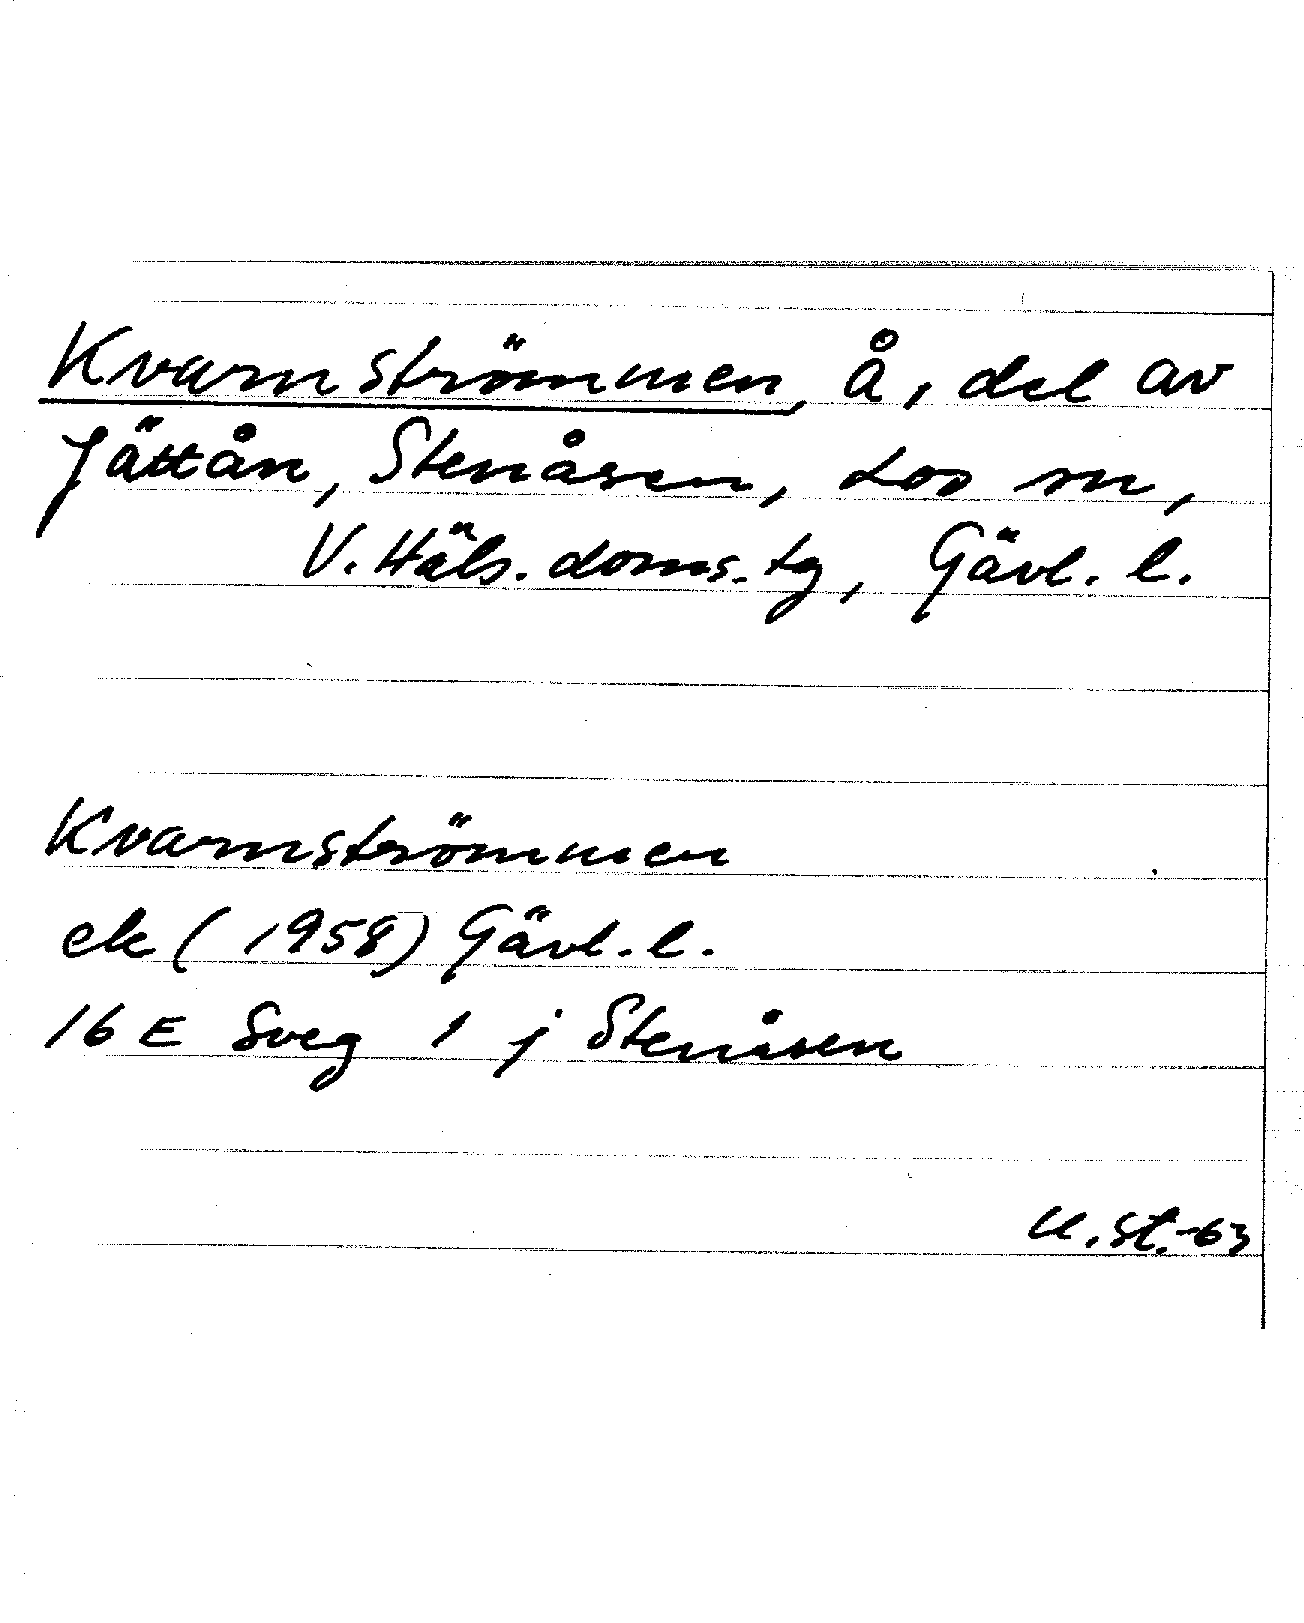 Kvarnströmmen, å, del av
Jättån, Stenåsen, Los sn,
V. Häls. doms. tg, Gävl. l.
Kvarnströmmen
ek (1958) Gävl. l.
16 E Sveg 1 j Stenåsen
U. St. -63